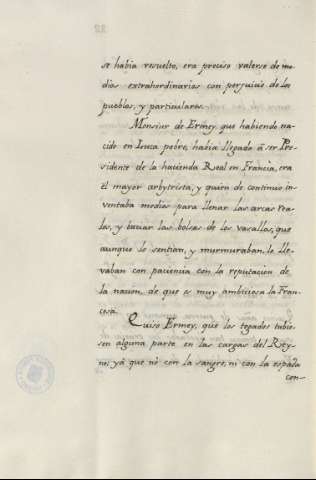 se habia resuelto, era preciso valerse de me-
dios extrahordinarios con perjuicio de los
pueblos, y particulares.
Monsiur de Ermey, que habiendo na-
cido en Luca pobre, habia llegado à ser Pre-
sidente de la hacienda Real en Francia, era
el mayor arbytrista, y quien de continuo in-
ventaba medios para llenar las arcas rea-
les, y bacuar las bolsas de los vasallos, que
aunque lo sentian, y murmuraban, lo lle-
vaban con paciencia con la reputacion de
la nacion, de que es muy ambiciosa la Fran-
cesa.
Quiso Ermey, que los togados tubie-
sen alguna parte en las cargas del Rey-
no, yà que nò con la sangre, ni con la espada
con-